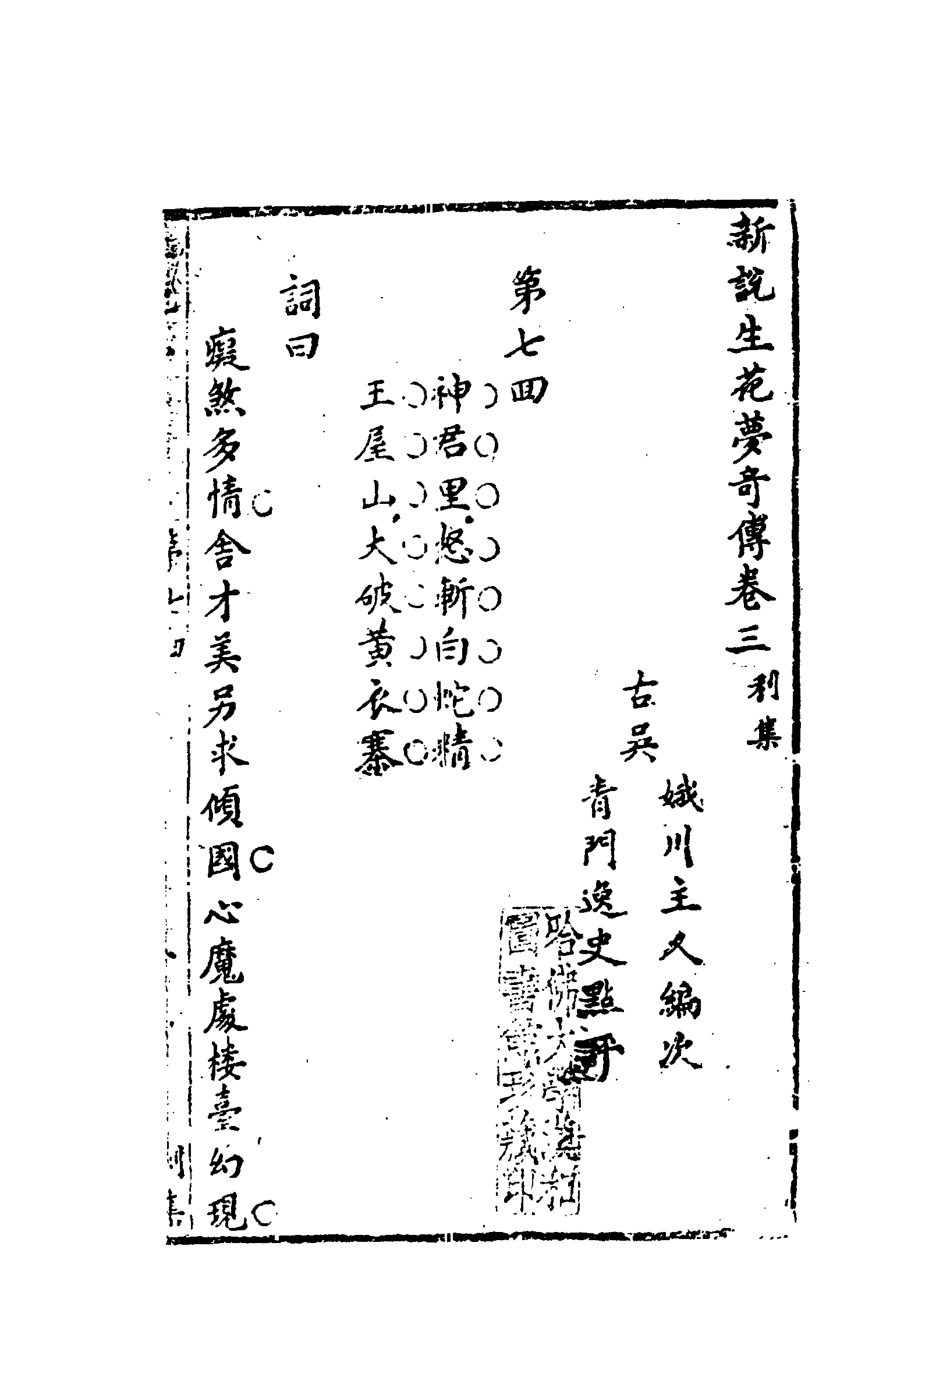 新說生花夢奇傳卷三 利集
古吳
娥川主人編次
青門逸史點評
第七回
神君里怒斬白蛇精
王屋山大破黃衣寨
詞曰
癡煞多情舍才美另求傾國心魔處楼臺幻現
哈佛大學漢和
圖書館珍藏印
第七回
利集